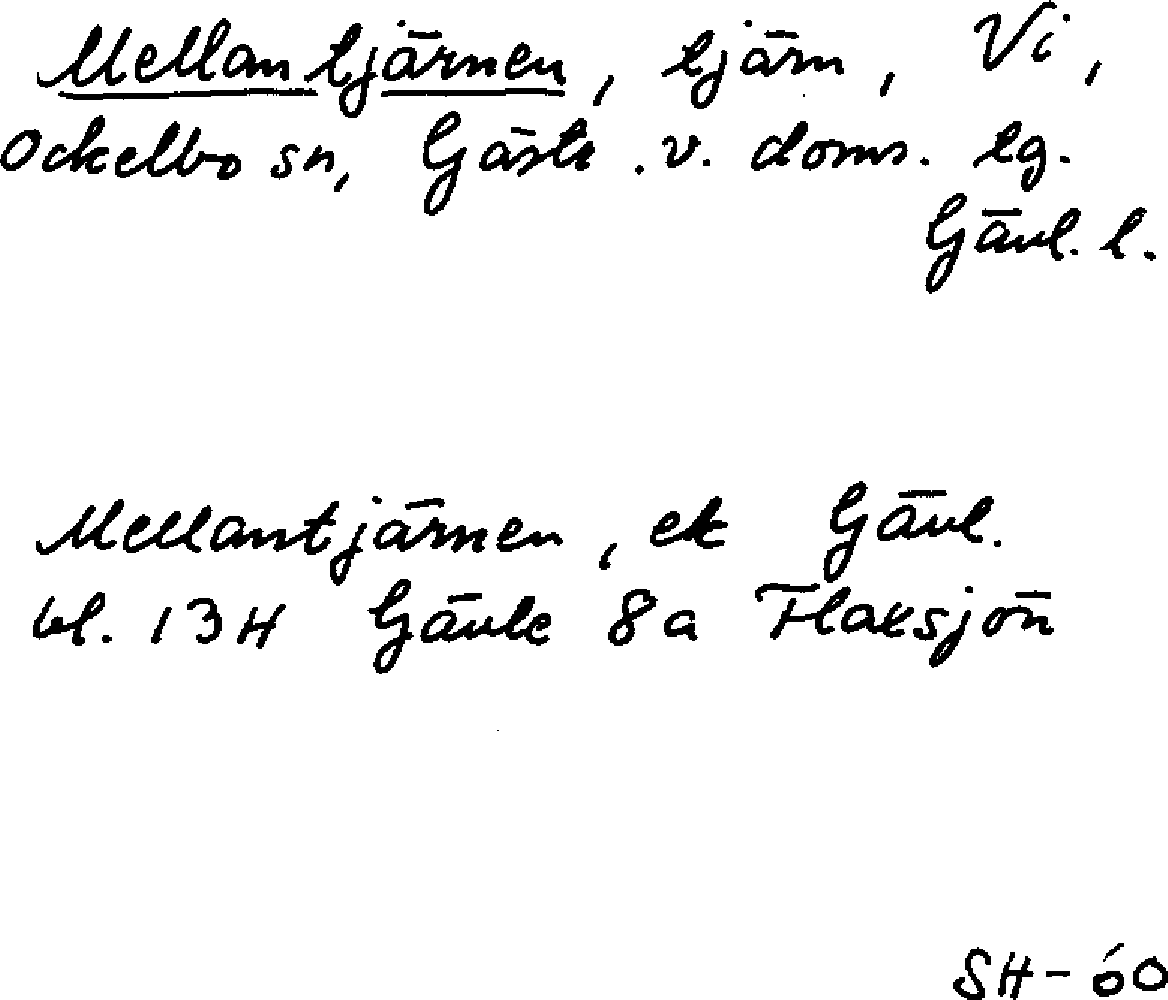 Mellantjärnen, tjärn, Vi,
Ockelbo sn, Gästr. v. doms. tg.
Gävl. l.
Mellantjärnen, ek Gävl.
bl. 13H Gävle 8a Flaxsjön
SH-60